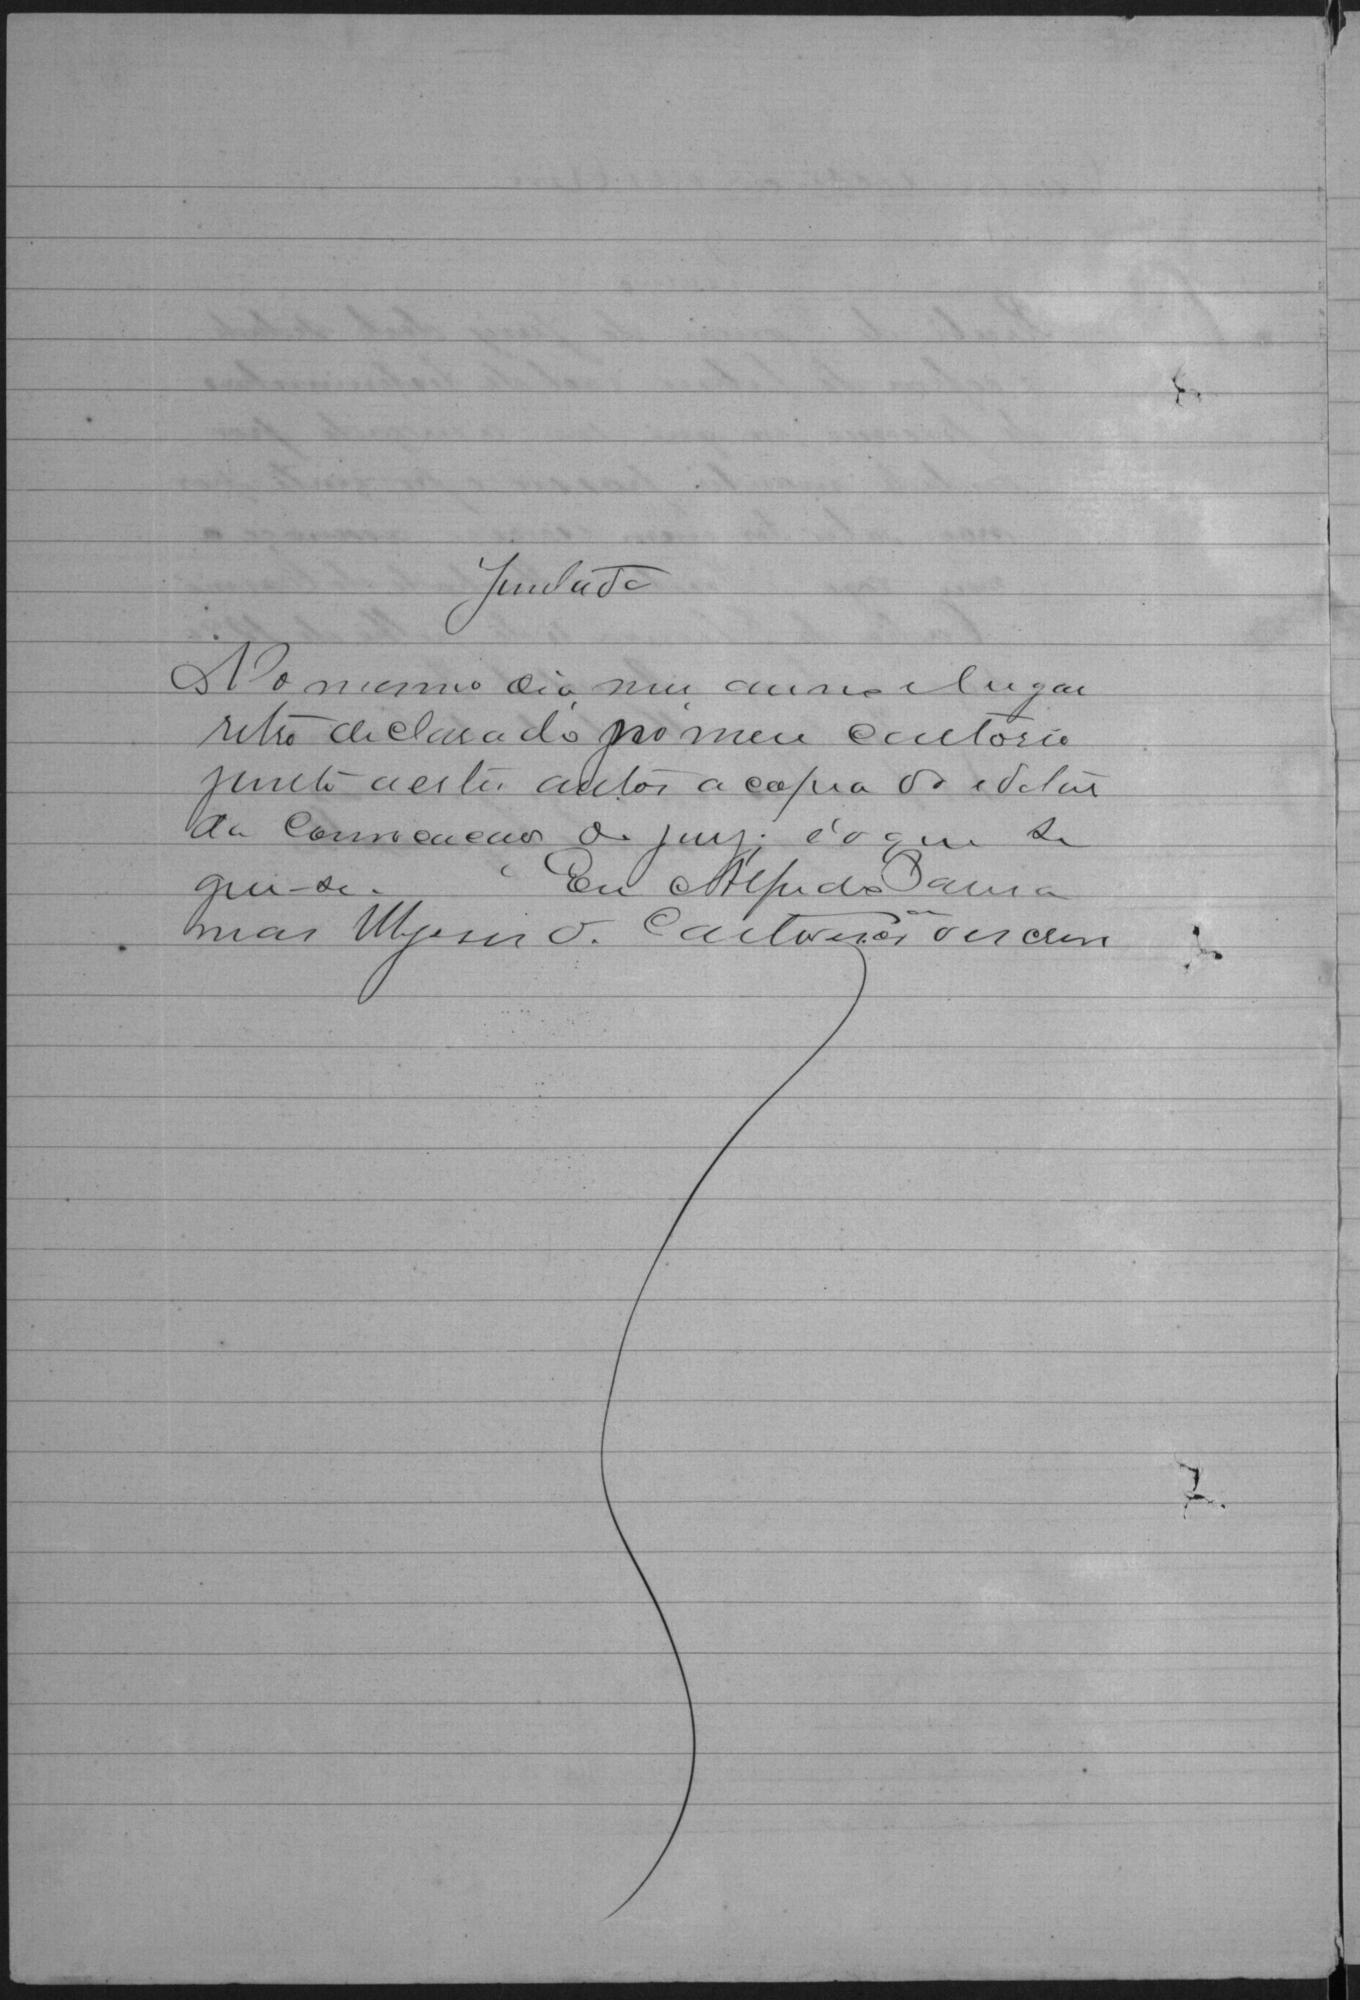 Juntada
No mesmo dia mez anno e lugar
retro declarado no meu cartorio
junto a estes autos a copia do edital
da Convocacao do jury; é o que se
gue-se. Eu Alfredo
mas de escrivão o escrevi